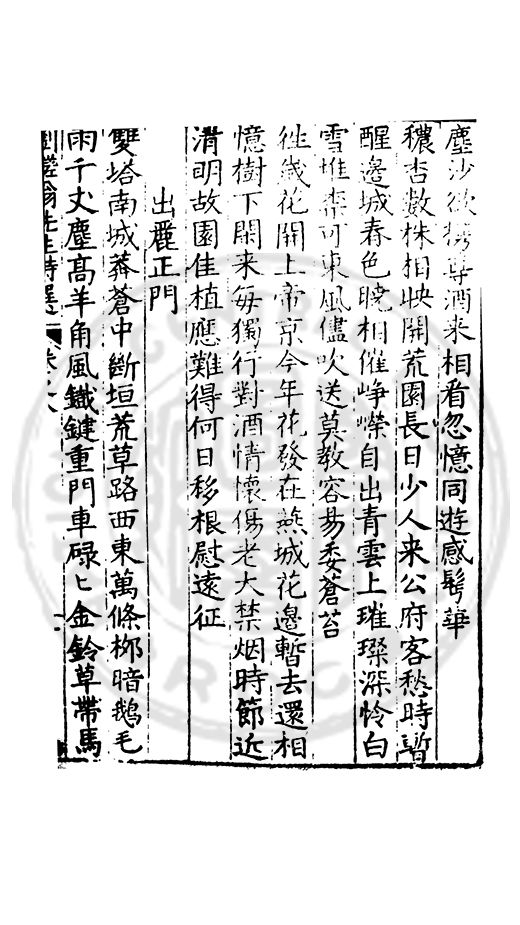 塵沙欲携尊酒来相看忽憶同遊感鬂華
穠杏數株相映開荒園長日少人来公府客愁時暫
醒邊城春色曉相催崢嶸自出青雲上璀璨深怜白
雪堆柰可東風儘吹送莫教容易委蒼苔
徃歳花開上帝京今年花發在燕城花邊暫去還相
憶樹下閑来每獨行對酒情懷傷老大禁烟時節近
清明故園佳植應難得何日移根慰遠征
出麗正門
雙塔南城莽蒼中斷垣荒草路西東萬條栁暗鵝毛
雨千丈塵髙羊角風鐡鍵重門車碌〻金鈴草帶馬
先生詩選